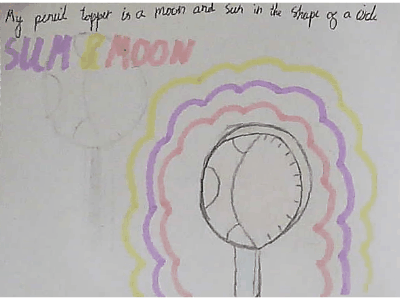 My pencil topper is a moon and sun in the shape of a
SUN & MOON